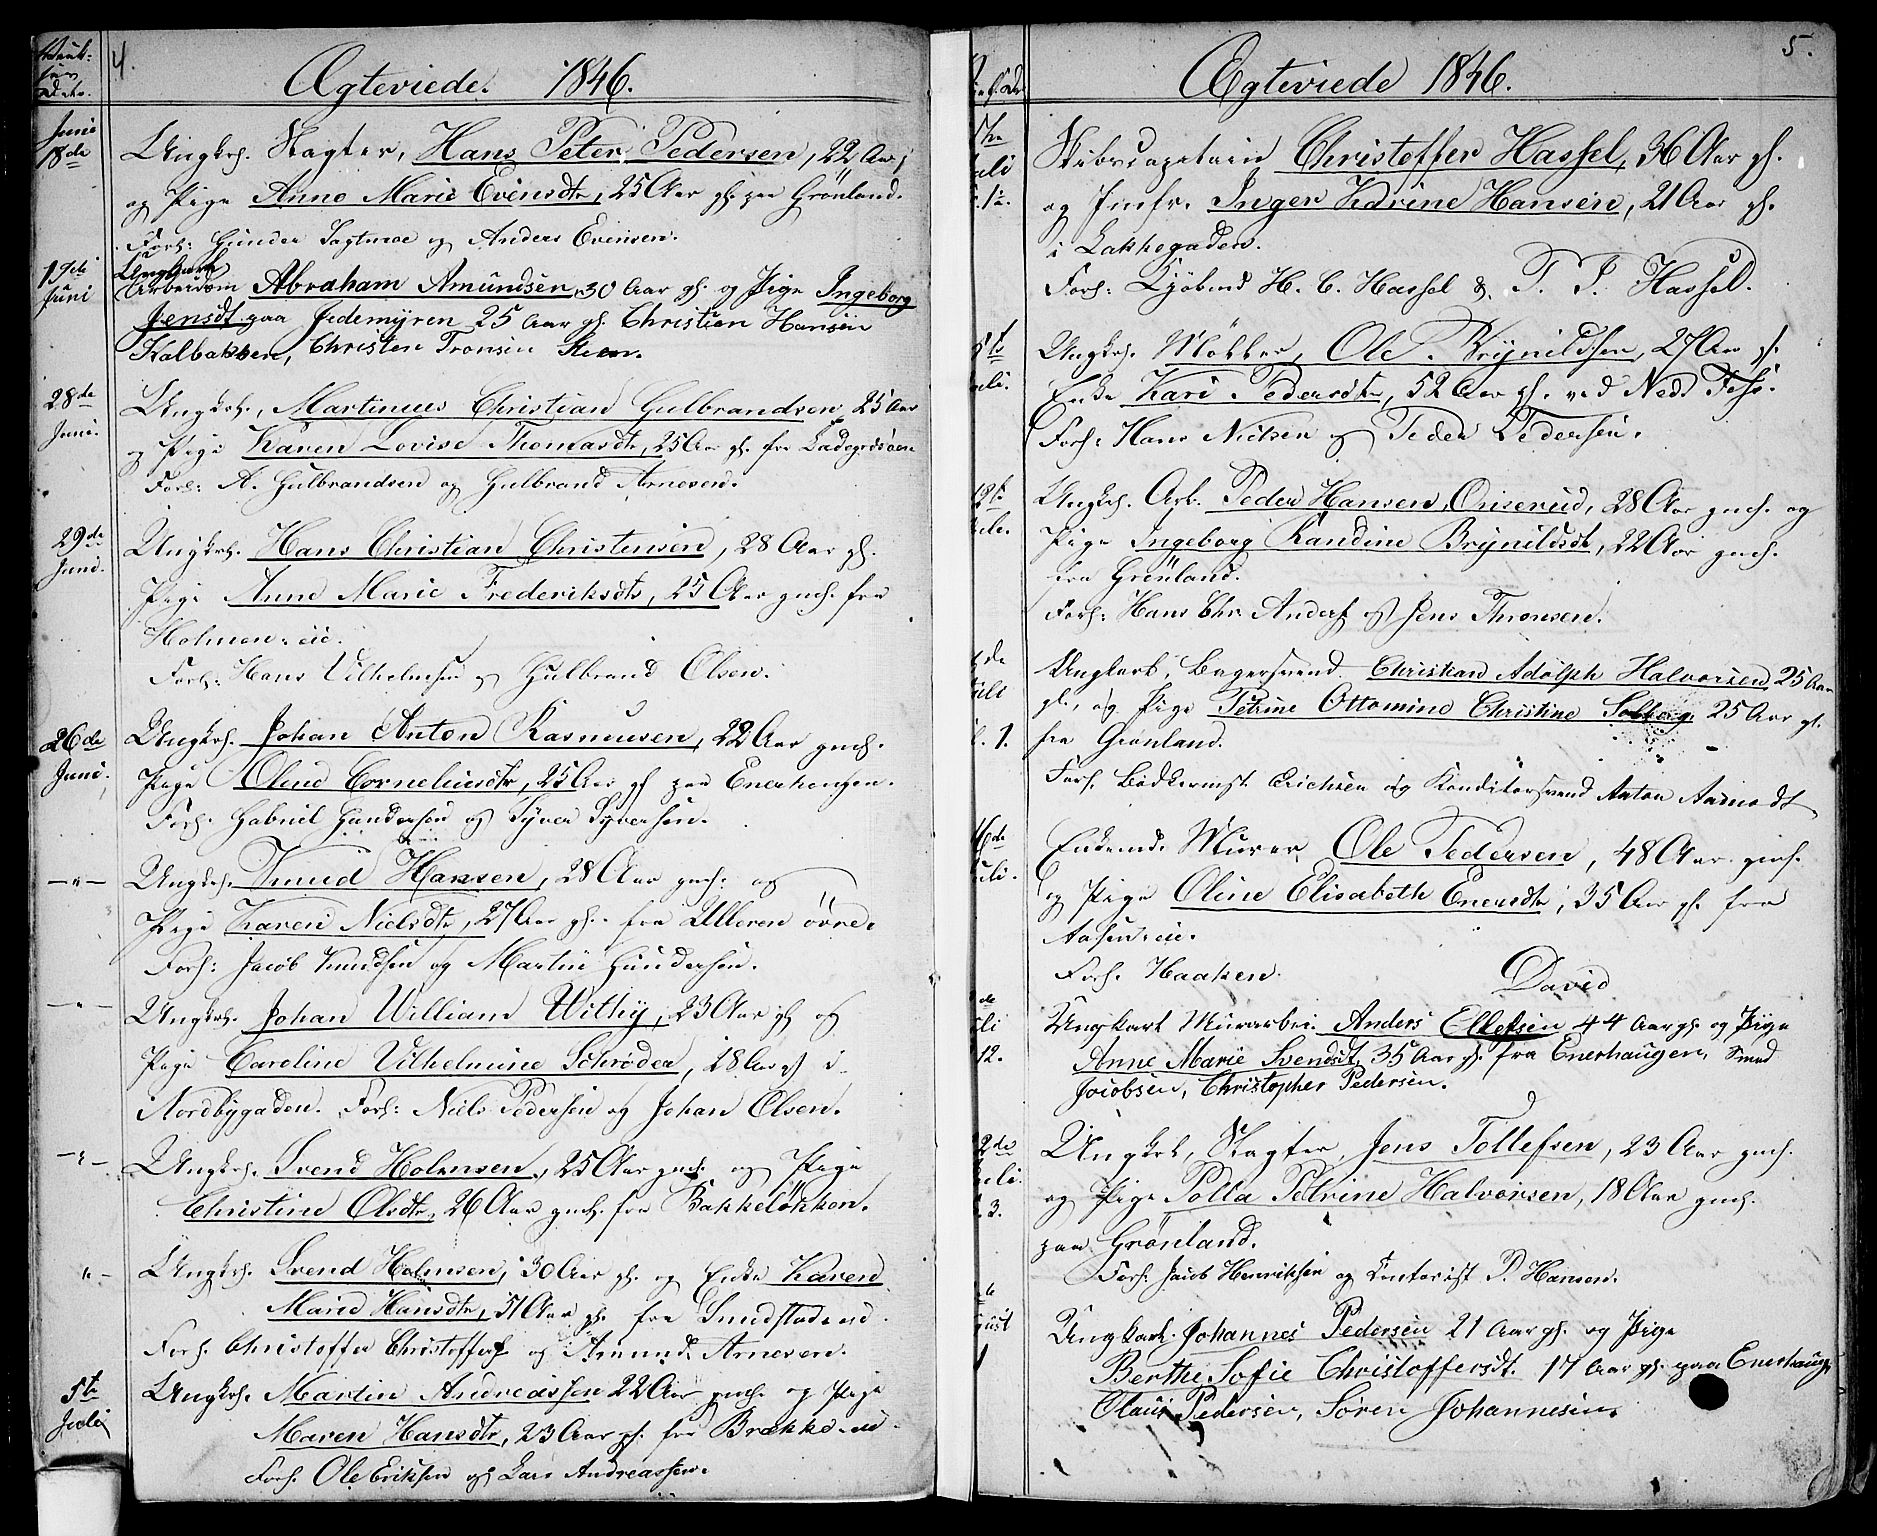 4.
Ægteviede. 1846.
Juni 18de
Ungkrl. Slagter, Hans Peter Pedersen, 22 Aar,
og Pige Anne Marie Evensdtr, 25 Aar gl. paa Grönland.
Forl: Gunder Sagtmoe og Anders Evensen.
19de Juni
Ungkarl
Arbeidsm Abraham Amundsen, 30 Aar gl. og Pige Ingeborg
Jensdt. paa Jedemyren 25 Aar gl. Christian Hansen
Kalbakken, Christen Tronsen
28de Juni.
Ungkrl. Martinius Christian Gulbrandsen 25 Aar
og Pige Karen Lovise Thomasdtr, 25 Aar gl. fra Ladegrdsöen
Forl: A. Gulbrandsen og Gulbrand Arnesen.
29de Juni.
Ungkrl. Hans Christian Christensen, 28 Aar gl.
Pige Anne Marie Frederiksdtr, 25 Aar gml. fra
Holmen-eie.
Forl: Hans Vilhelmsen og Gulbrand Olsen.
26de Juni.
Ungkrl. Johan Anton Rasmusen, 22 Aar gml.
Pige Oline Corneliusdtr, 25 Aar gl paa Enerhougen.
Forl. Gabriel Gundersen og Syver Syversen.
— " —
Ungkrl. Knud Hansen, 28 Aar gml. og
Pige Karen Nielsdtr, 27 Aar gl. fra Ulleren övre.
Forl: Jacob Knudsen og Martin Gundersen.
— " —
Ungkrl. Johan William Withy, 23 Aar gl og
Pige Caroline Vilhelmine Schrøder, 18 Aar gl i
Nordbygaden. Forl: Niels Pedersen og Johan Olsen.
— " —
Ungkrl. Svend Holmsen, 25 Aar gml. og Pige
Christine Olsdtr, 26 Aar gml. fra Bakkelökken.
" —
Ungkrl. Svend Holmsen, 30 Aar gl. og Enke Karen
Marie Hansdtr, 51 Aar gl. fra
Forl. Christoffer Christoffers og Amund Arnesen.
5te Juli
Ungkrl. Martin Andreassen 22 Aar gml. og Pige
Maren Hansdtr, 23 Aar gl. fra Brække
Forl. Ole Eriksen og Lars Andreassen.
5.
Ægteviede 1846.
Skibscapitain Christoffer Hassel, 36 Aar gl.
og Jmfr. Inger Katrine Hansen, 21 Aar gl.
i Lakkegaden.
Forl: Kjöbmd H. C. Hassel & P. J. Hassel.
Ungkrl. Möbler, Ole Brynildsen, 27 Aar gl.
Enke Kari Pedersdtr, 52 Aar gl. ved Neds Foss.
Forl: Hans Nielsen og Peder Pedersen.
Ungkrl. Arb. Peder Hansen Oriserud, 28 Aar gml. og
Pige Ingeborg Randine Brynildsdt, 22 Aar gml.
fra Grönland.
Forl: Hans Chr. Anders og Jens Thronsen.
Ungkarl, Bagersvend Christian Adolph Halvorsen, 25 Aar
gl., og Pige Petrine Ottomine Christine Solberg 25 Aar gl.
1. fra Grönland.
Forl. Bödkermst. Erichsen og Konditorsvend Anton Arnodt
Enkemd. Murer Ole Pedersen, 48 Aar gml.
og Pige Oline Elisabeth Enersdtr, 35 Aar gl. fra
Aasen-eie.
Forl. Haaken. David
12.
Ungkarl Murarbei. Anders Ellefsen 44 Aar gl. og Pige
Anne Marie Svendsdt. 35 Aar gl. fra Enerhaugen, Knud
Jacobsen, Christopher Pedersen.
3.
Ungkrl, Slagter, Jens Tollefsen, 23 Aar gml.
og Pige Polla Petrine Halvorsen, 18 Aar gml.
paa Grönland.
Forl. Jacob Henriksen og Contorist P. Hansen.
Ungkarl. Johannes Pedersen 21 Aar gl. og Pige
Berthe Sofie Christoffersdt. 17 Aar gl. paa Enerhaug
Olaus Pedersen, Sören Johannesen.